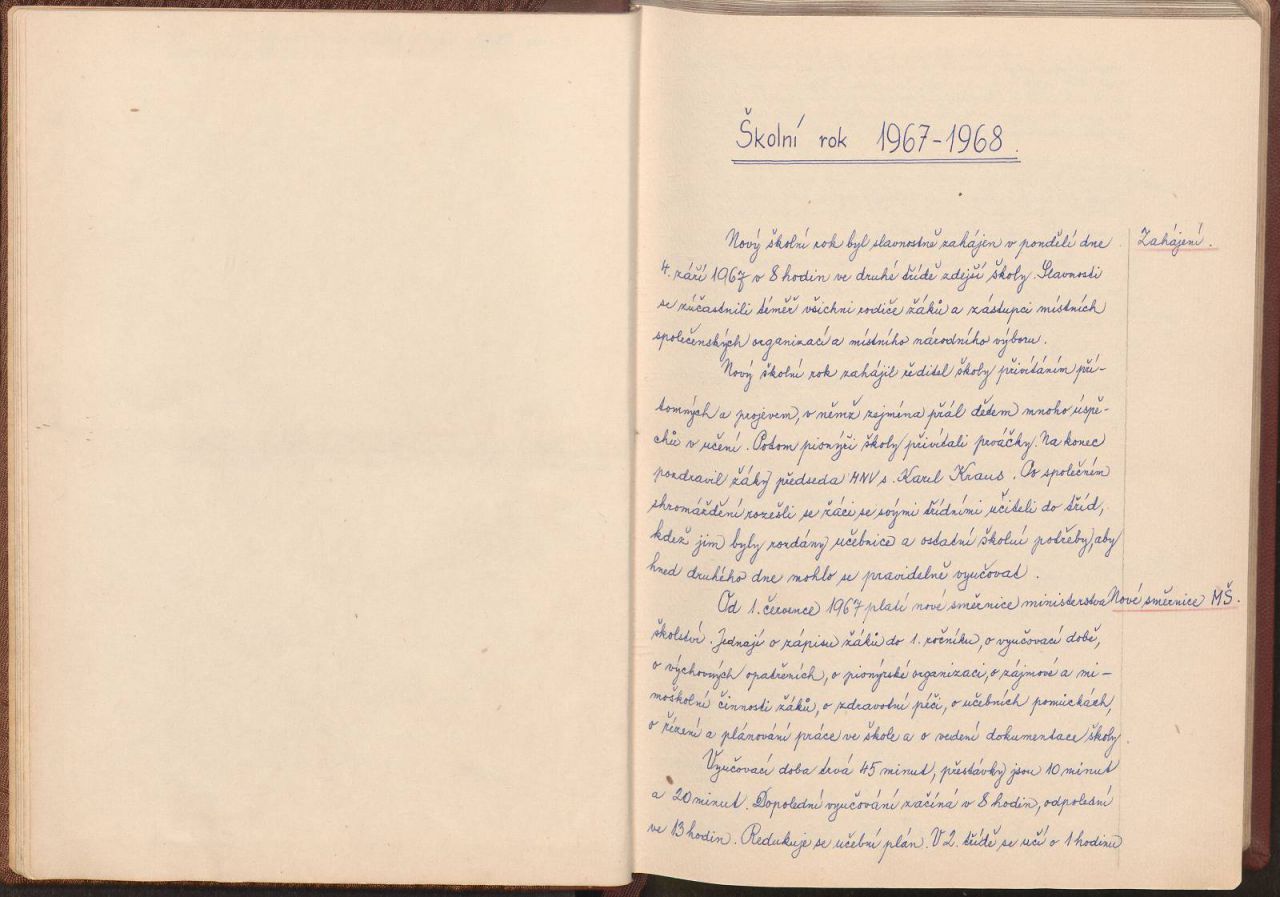 Školní rok 1967-1968.
Nový školní rok byl slavnostně zahájen v pondělí dne
Zahájení.
4. září 1967 v 8 hodin ve druhé třídě zdejší školy. Slavnosti
se zúčastnili téměř všichni rodiče žáků a zástupci místních
společenských organizací a místního národního výboru.
Nový školní rok zahájil ředitel školy přivítáním pří-
tomných a projevem, v němž zejména přál dětem mnoho úspě-
chů v učení. Potom pionýři školy přivítali prváčky. Na konec
pozdravil žáky předseda MNV s. Karel Kraus. Po společném
shromáždění rozešli se žáci se svými třídními učiteli do tříd,
kdež jim byly rozdány učebnice a ostatní školní potřeby, aby
hned druhého dne mohlo se pravidelně vyučovat.
Od 1. července 1967 platí nové směrnice ministerstva
Nové směrnice MŠ.
školství. Jednají o zápisu žáků do 1. ročníku, o vyučovací době,
o výchovných opatřeních, o pionýrské organizaci, o zájmové a mi-
moškolní činnosti žáků, o zdravotní péči, o učebních pomůckách,
o řízení a plánování práce ve škole a o vedení dokumentace školy.
Vyučovací doba trvá 45 minut, přestávky jsou 10 minut
a 20 minut. Dopolední vyučování začíná v 8 hodin, odpolední
ve 13 hodin. Redukuje se učební plán. V 2. třídě se učí o 1 hodinu